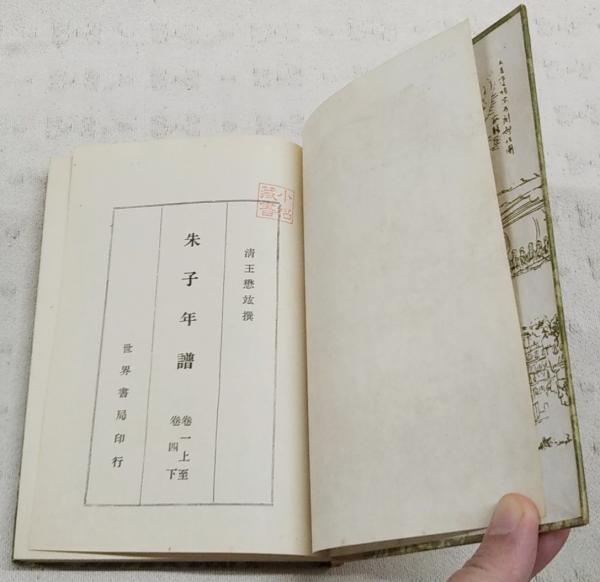 清王懋竑撰
朱子年譜
卷一上至
卷四下
世界書局印行
藏書